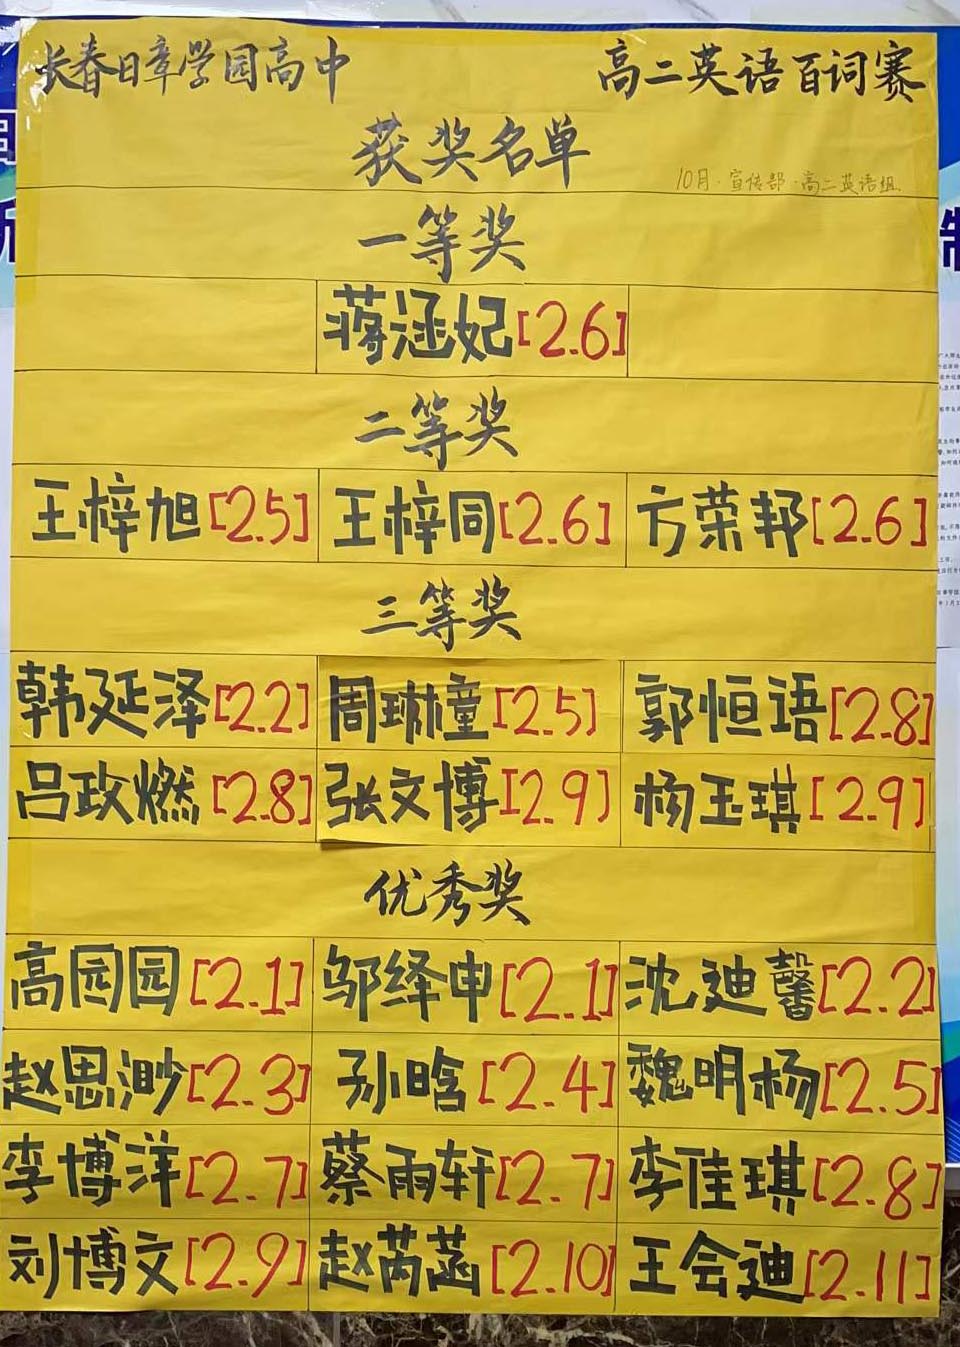 长春日章学园高中 高二英语百词赛
获奖名单
10月·宣传部·高二英语组
一等奖
蒋涵妃[2.6]
二等奖
王梓旭[2.5] 王梓同[2.6] 方荣邦[2.6]
三等奖
韩延泽[2.2] 周琳童[2.5] 郭恒语[2.8]
吕政燃[2.8] 张文博[2.9] 杨玉琪[2.9]
优秀奖
高园园[2.1] 邬绎申[2.1] 沈迪馨[2.2]
赵思渺[2.3] 孙晗[2.4] 魏明杨[2.5]
李博洋[2.7] 蔡雨轩[2.7] 李佳琪[2.8]
刘博文[2.9] 赵芮菡[2.10] 王会迪[2.11]
制